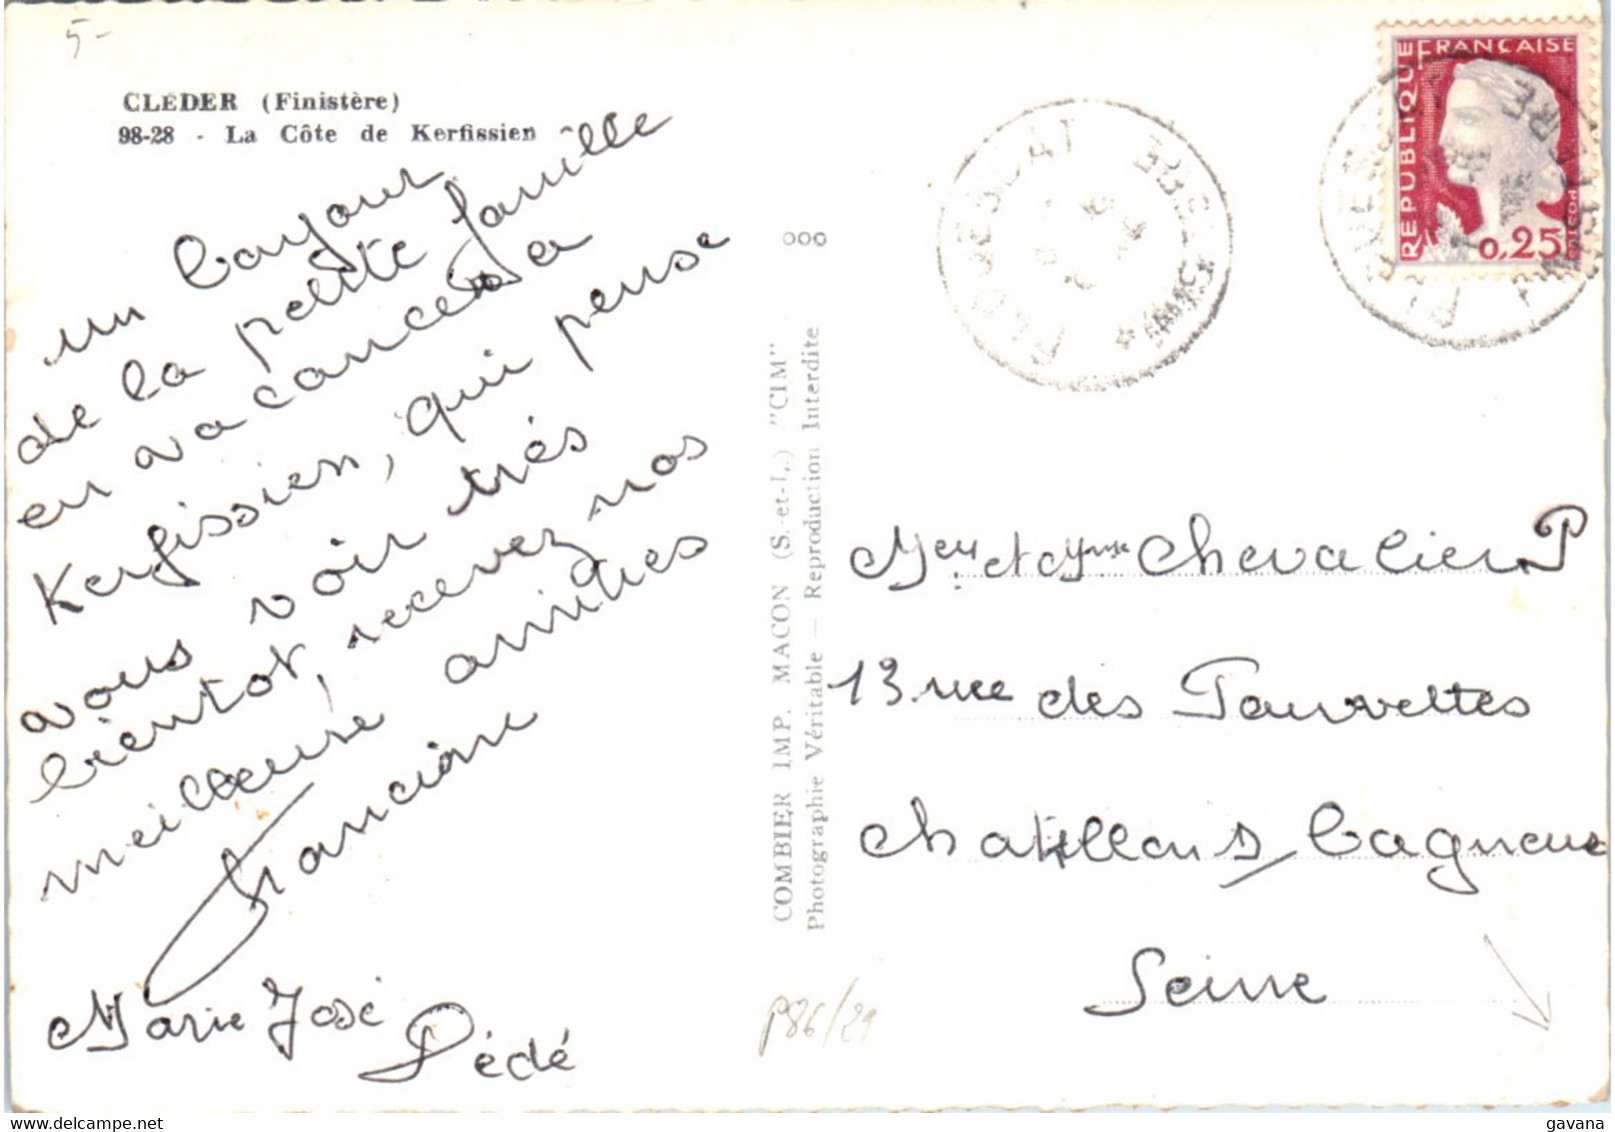 5-
CLÉDER (Finistère)
98-28 - La Côte de Kerfissien
un bonjour
de la petite famille
en vacances a
Kerfissien, qui pense
vous voir très
bientot, recevez nos
meilleure amities
Francine
Marie José
Dédé
ooo
COMBIER IMP. MACON (S.-et-L.) "CIM"
Photographie Véritable — Reproduction Interdite
P86/29
RÉPUBLIQUE FRANÇAISE
POSTES
0,25
Meur et Mme Chevalier P
13 rue des Fauvettes
Chatillons s/ bagneux
Seine